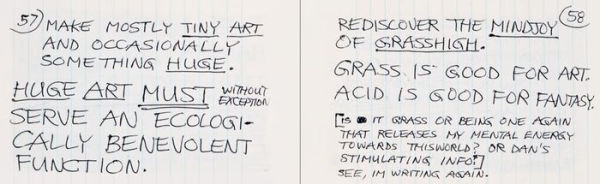 57
MAKE MOSTLY TINY ART
AND OCCASIONALLY
SOMETHING HUGE.
HUGE ART MUST WITHOUT EXCEPTION
SERVE AN ECOLOGI-
CALLY BENEVOLENT
FUNCTION.
58
REDISCOVER THE MINDJOY
OF GRASSHIGH.
GRASS IS GOOD FOR ART.
ACID IS GOOD FOR FANTASY.
[IS IT GRASS OR BEING ONE AGAIN
THAT RELEASES MY MENTAL ENERGY
TOWARDS THISWORLD? OR DAN'S
STIMULATING INFO?]
SEE, IM WRITING AGAIN.